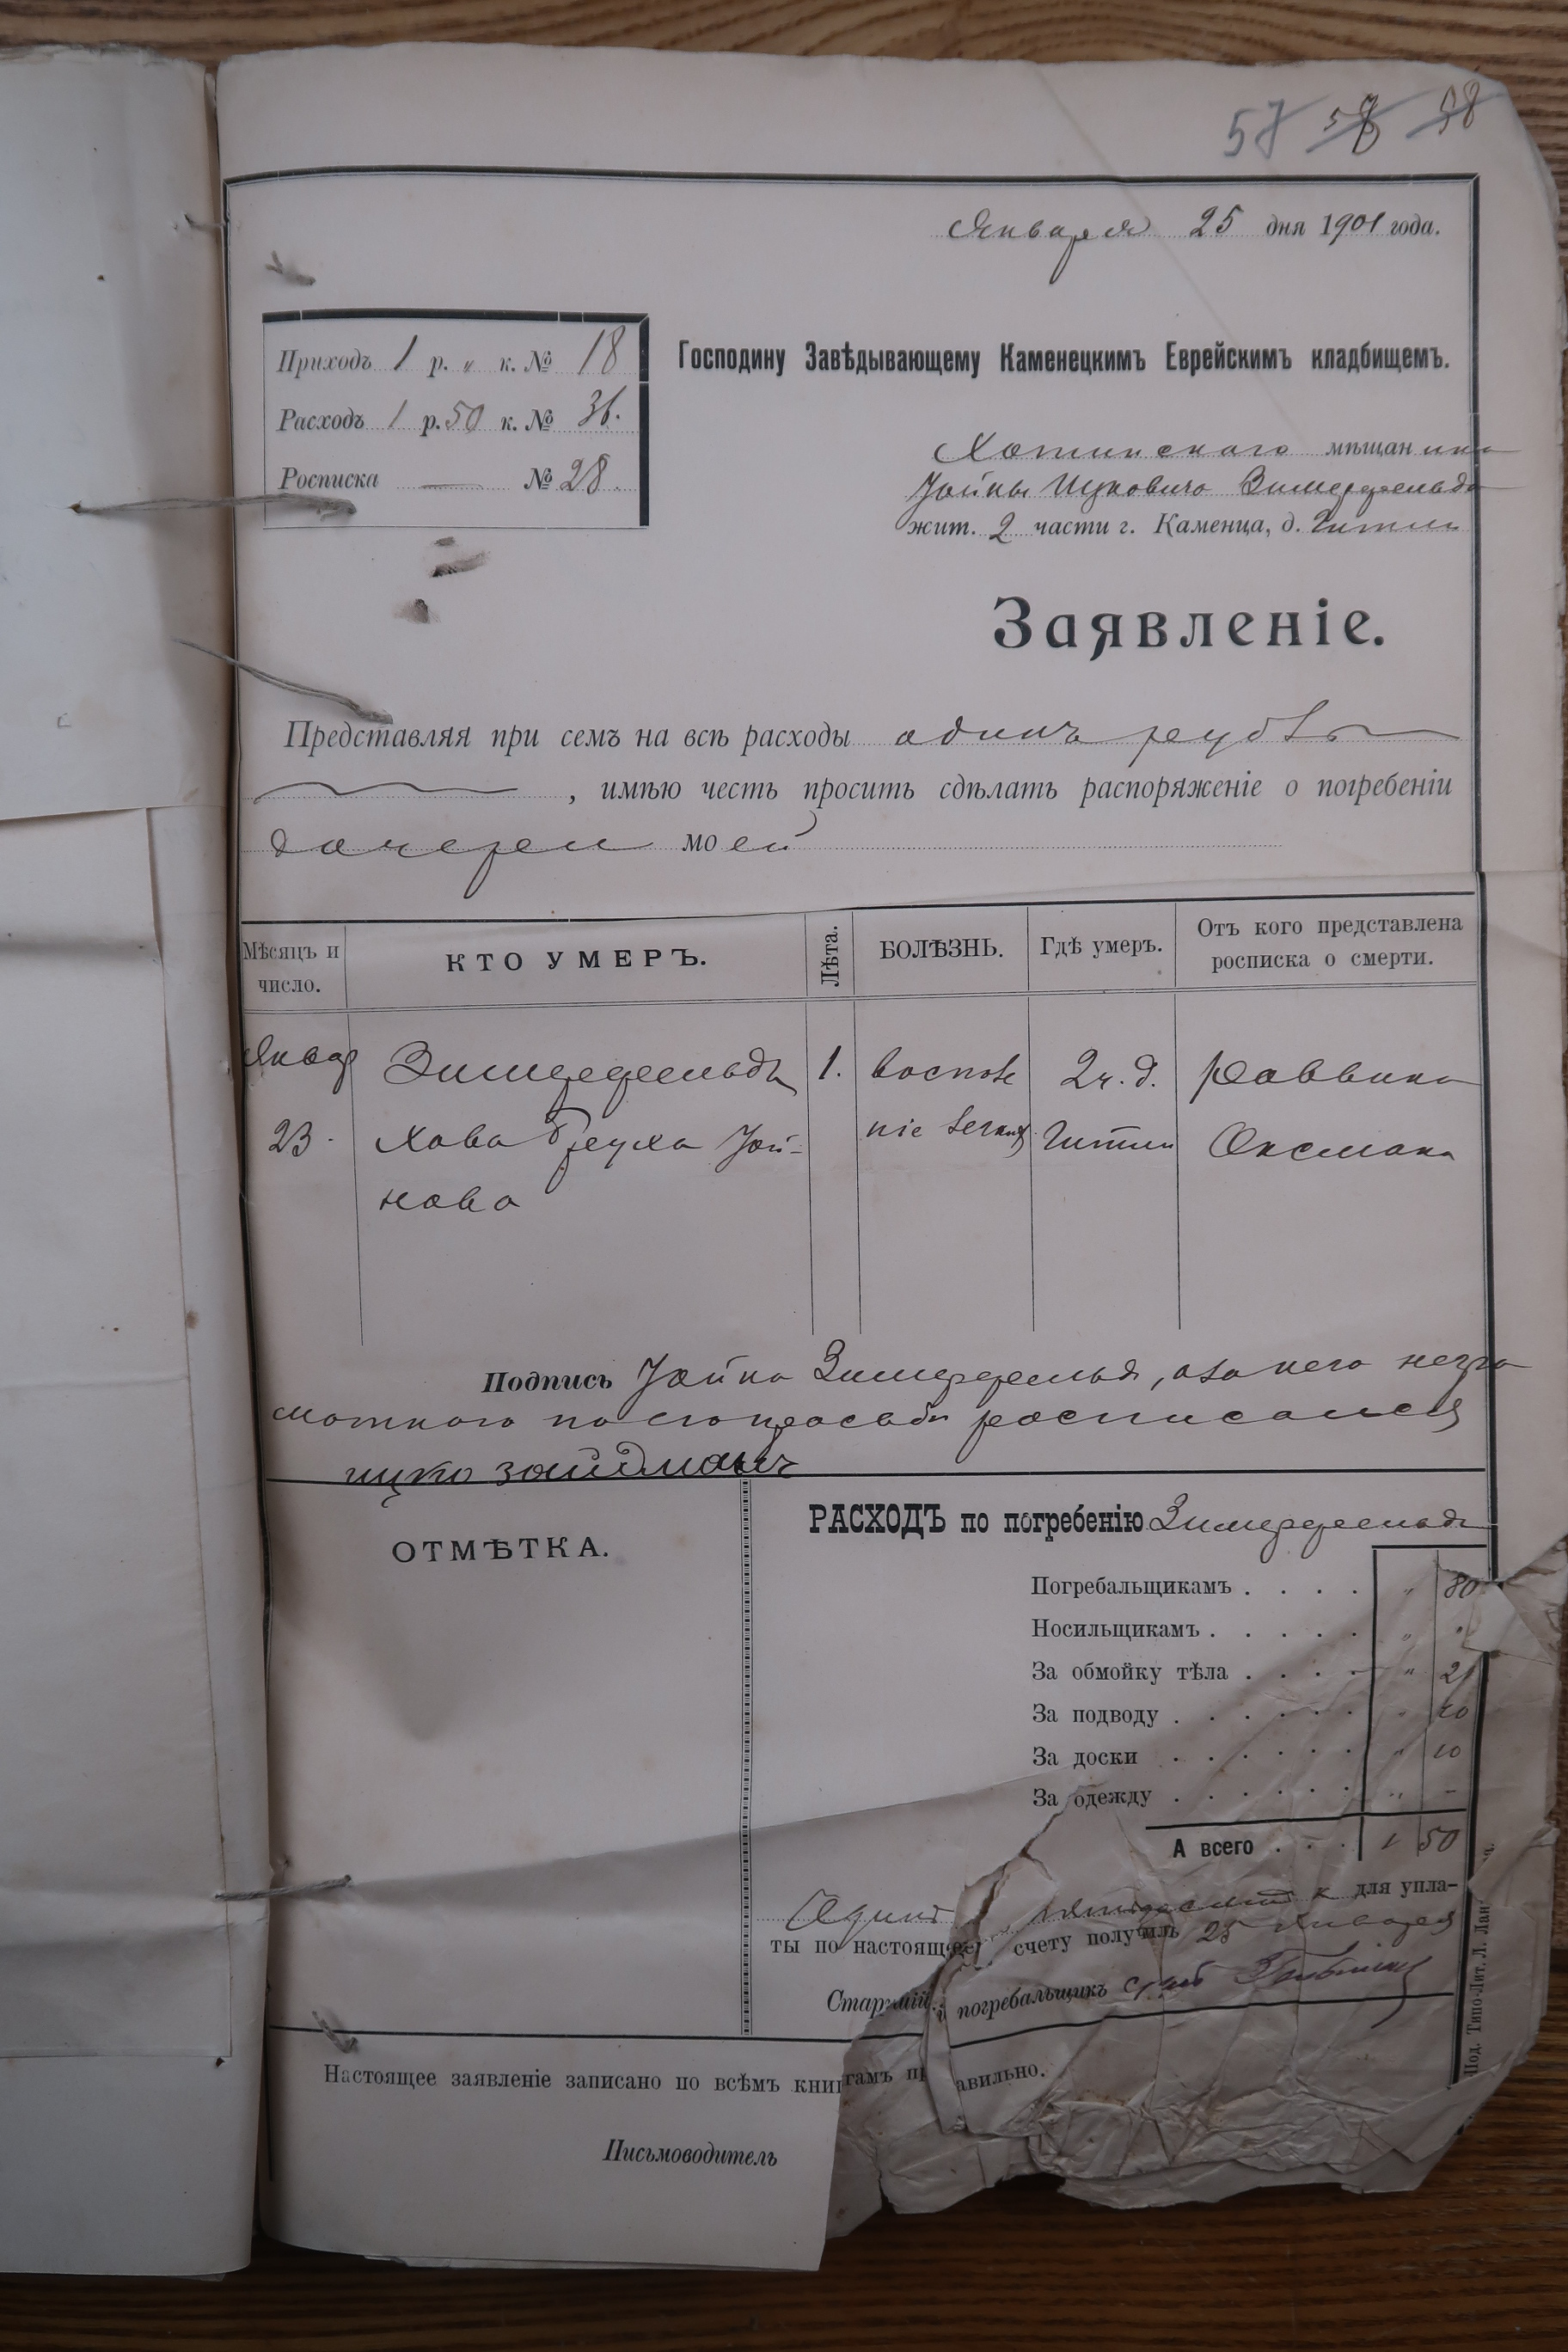 57 58 98
Января 25 дня 1901 года.
Приходъ 1 р. „ к. № 18
Расходъ 1 р. 50 к. № 36.
Росписка — № 28.
Господину Завѣдывающему Каменецкимъ Еврейскимъ кладбищемъ.
Хотинскаго мѣщанина
Іойны Ицковича Зимерфельда
жит. 2 части г. Каменца, д.
Заявленіе.
Представляя при семъ на всѣ расходы одинъ рубль
, имѣю честь просить сдѣлать распоряженіе о погребеніи
дочери моей
Мѣсяцъ и число. КТО УМЕРЪ. Лѣта. БОЛѢЗНЬ. Гдѣ умеръ. Отъ кого представлена росписка о смерти.
Январ Зимерфельдъ 1. воспале 2 ч. д. Раввина
23. Хава Бруха Іой- ніе легких Оксмана
нова
Подпись Іойна Зимерфельд, а за него негра
мотного по его просьбѣ росписался
ицко зайдманъ
ОТМѢТКА.
РАСХОДЪ по погребенію Зимерфельда
Погребальщикамъ . . . . „ 80
Носильщикамъ . . . . . „ „
За обмойку тѣла . . . . „ 2
За подводу . . . . . . „ 40
За доски . . . . . . „ 10
За одежду . . . . . . „ –
А всего . . . 1 50
Один пятьдесят к для упла-
ты по настоящему счету получилъ 25 Января
Старшій погребальщикъ
Настоящее заявленіе записано по всѣмъ книгамъ правильно.
Письмоводитель
Под. Типо-Лит. Л. Лан